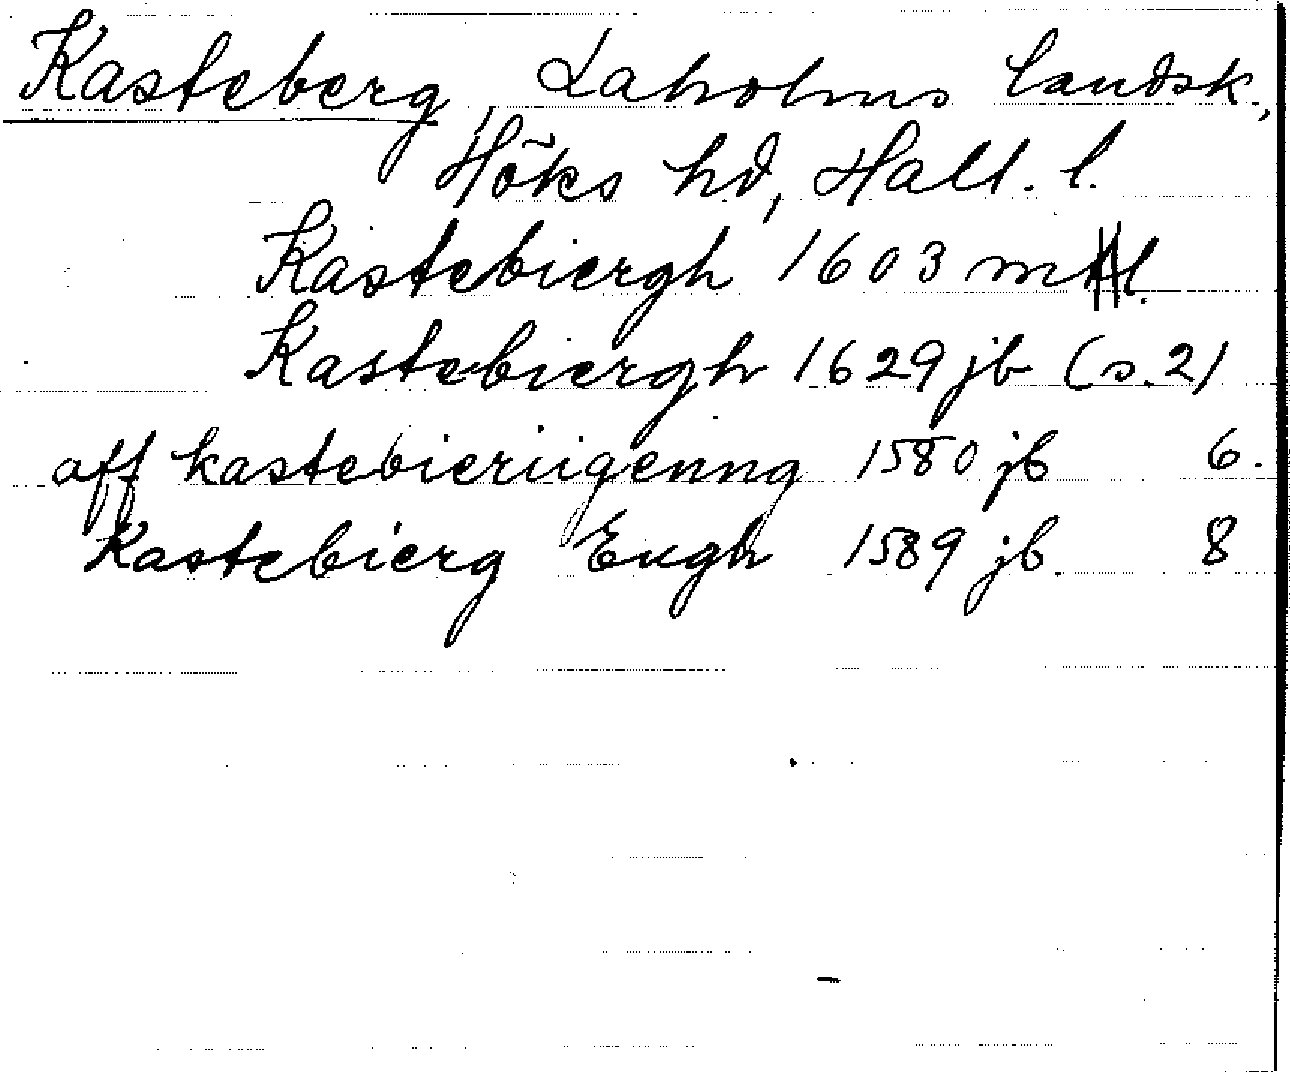 Kasteberg, Laholms landsk.,
Höks hd, Hall. l.
Kastebiergh 1603 mtl.
Kastebiergh 1629 jb (s. 2)
aff kastebieriigenng 1580 jb 6.
Kastebierg Engh 1589 jb. 8